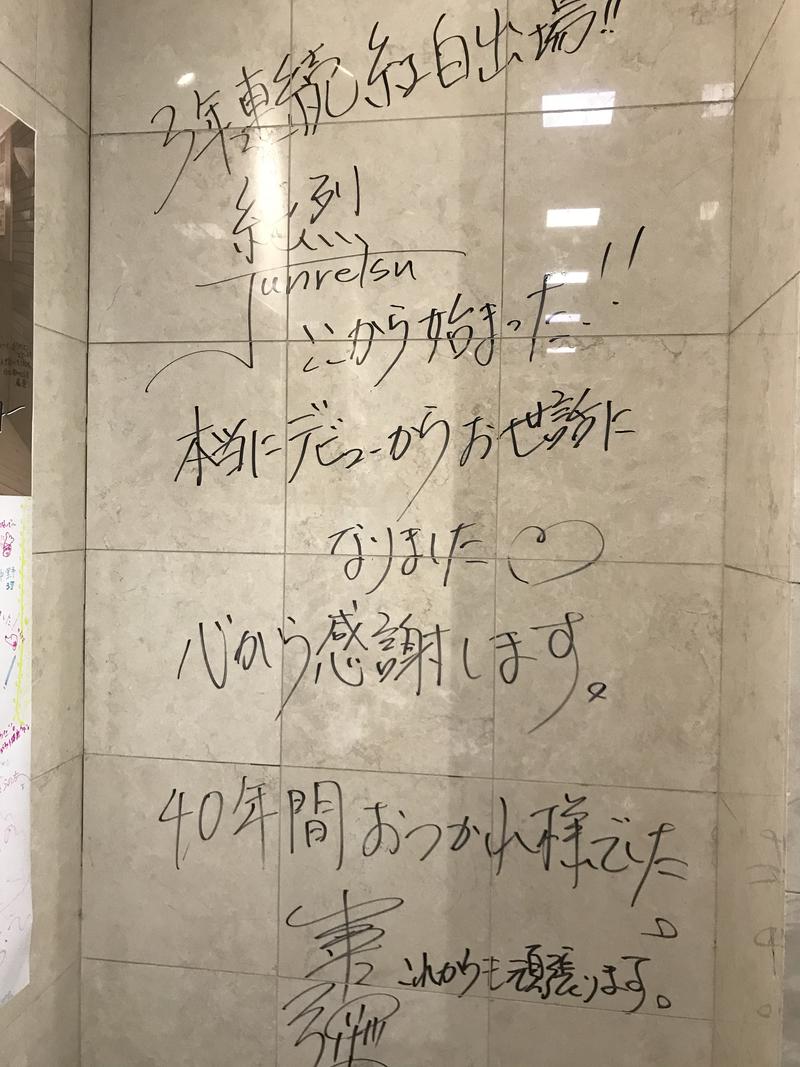 3年連続紅白出場!!
純烈
Junretsu
ここから始まった!!
本当にデビューからお世話に
なりました♡
心から感謝します。
40年間おつかれ様でした。
これからも頑張ります。